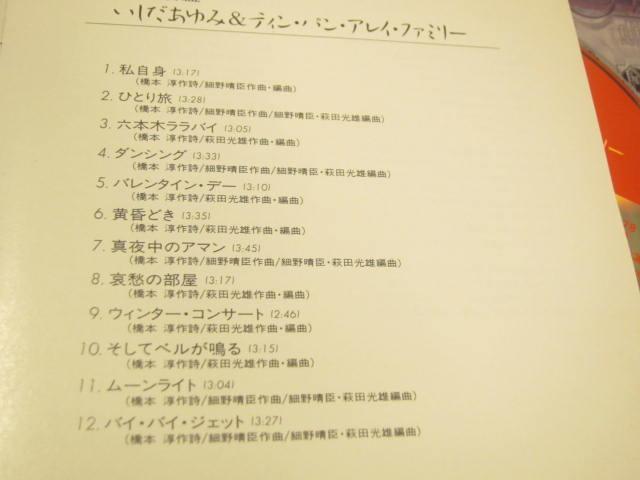 いしだあゆみ&ティン・パン・アレイ・ファミリー
1. 私自身 (3:17)
(橋本 淳作詩/細野晴臣作曲・編曲)
2. ひとり旅 (3:28)
(橋本 淳作詩/細野晴臣作曲/細野晴臣・萩田光雄編曲)
3. 六本木ララバイ (3:05)
(橋本 淳作詩/萩田光雄作曲・編曲)
4. ダンシング (3:33)
(橋本 淳作詩/細野晴臣作曲/細野晴臣・萩田光雄編曲)
5. バレンタイン・デー (3:10)
(橋本 淳作詩/萩田光雄作曲・編曲)
6. 黄昏どき (3:35)
(橋本 淳作詩/萩田光雄作曲・編曲)
7. 真夜中のアマン (3:45)
(橋本 淳作詩/細野晴臣作曲/細野晴臣・萩田光雄編曲)
8. 哀愁の部屋 (3:17)
(橋本 淳作詩/萩田光雄作曲・編曲)
9. ウィンター・コンサート (2:46)
(橋本 淳作詩/萩田光雄作曲・編曲)
10. そしてベルが鳴る (3:15)
(橋本 淳作詩/萩田光雄作曲・編曲)
11. ムーンライト (3:04)
(橋本 淳作詩/細野晴臣作曲/細野晴臣・萩田光雄編曲)
12. バイ・バイ・ジェット (3:27)
(橋本 淳作詩/細野晴臣作曲/細野晴臣・萩田光雄編曲)